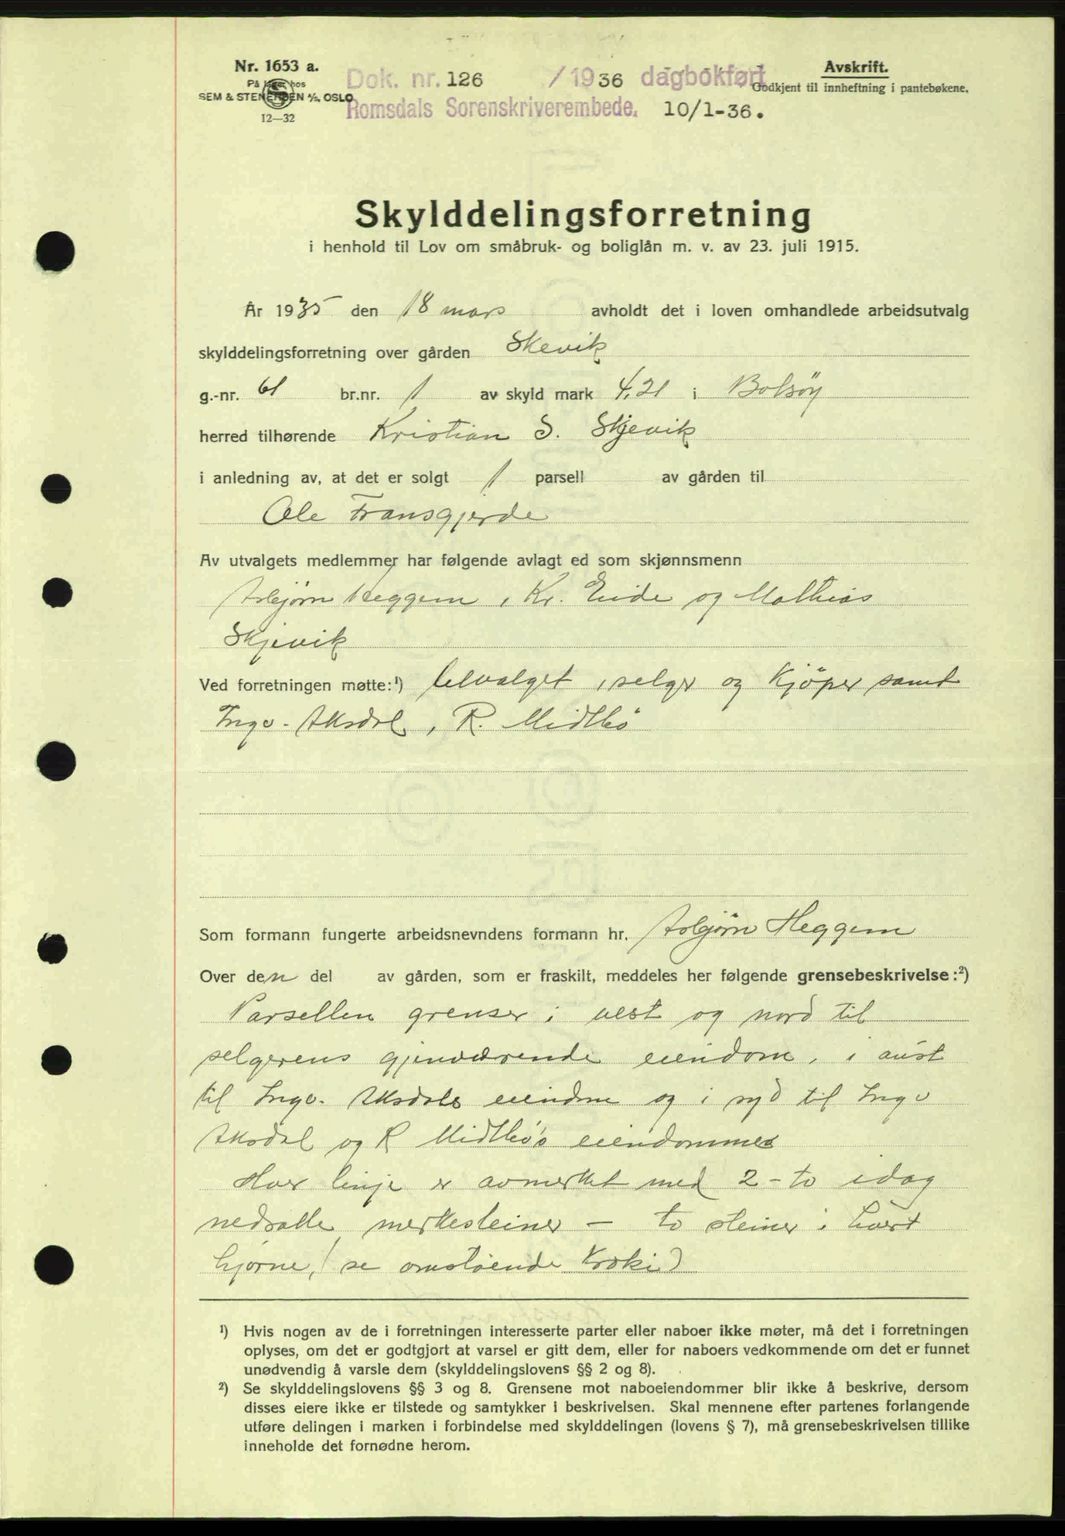 Nr. 1653 a.
På lager hos
SEM & STENERSEN A/S, OSLO
12—32
Dok. nr. 126 /1936 dagbokført
Romsdals Sorenskriverembede. 10/1-36.
Avskrift.
Godkjent til innheftning i pantebøkene.
Skylddelingsforretning
i henhold til Lov om småbruk- og boliglån m. v. av 23. juli 1915.
År 1935 den 18 mars avholdt det i loven omhandlede arbeidsutvalg
skylddelingsforretning over gården Skevik
g.-nr. 61 br.nr. 1 av skyld mark 4,21 i Bolsøy
herred tilhørende Kristian S. Skjevik
i anledning av, at det er solgt 1 parsell av gården til
Ole Fransgjerde
Av utvalgets medlemmer har følgende avlagt ed som skjønnsmenn
Asbjørn Heggem, Kr. Eide og Mathias
Skjevik
Ved forretningen møtte:¹) Utvalget, selger og kjøper samt
Ingv. Aksdal, R. Midtbø
Som formann fungerte arbeidsnevndens formann hr. Asbjørn Heggem
Over den del av gården, som er fraskilt, meddeles her følgende grensebeskrivelse:²)
Parsellen grenser i vest og nord til
selgerens gjenværende eiendom, i aust
til Ingv. Aksdals eiendom og i syd til Ingv
Aksdal og R Midtbø's eiendommer
Hver linje er avmerket med 2 - to idag
nedsatte merkesteiner — to steiner i hvert
hjørne, (se omstøende kroki)
¹) Hvis nogen av de i forretningen interesserte parter eller naboer ikke møter, må det i forretningen
oplyses, om det er godtgjort at varsel er gitt dem, eller for naboers vedkommende om det er funnet
unødvendig å varsle dem (skylddelingslovens §§ 2 og 8).
²) Se skylddelingslovens §§ 3 og 8. Grensene mot naboeiendommer blir ikke å beskrive, dersom
disses eiere ikke er tilstede og samtykker i beskrivelsen. Skal mennene efter partenes forlangende
utføre delingen i marken i forbindelse med skylddelingen (lovens § 7), må grensebeskrivelsen tillike
inneholde det fornødne herom.